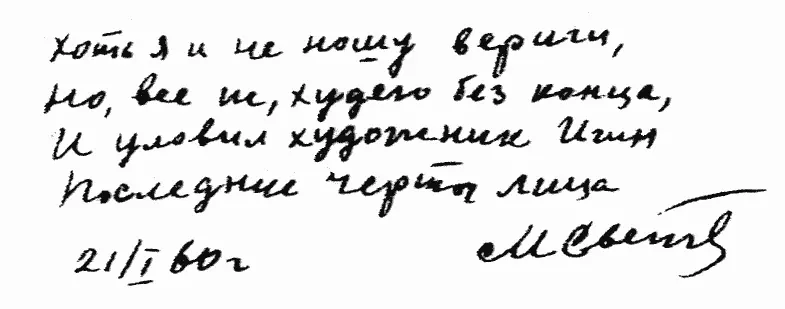 Хоть я и не ношу вериги,
Но, все ж, худею без конца,
И уловил художник Игин
Последние черты лица
21/I 60 г МСветл